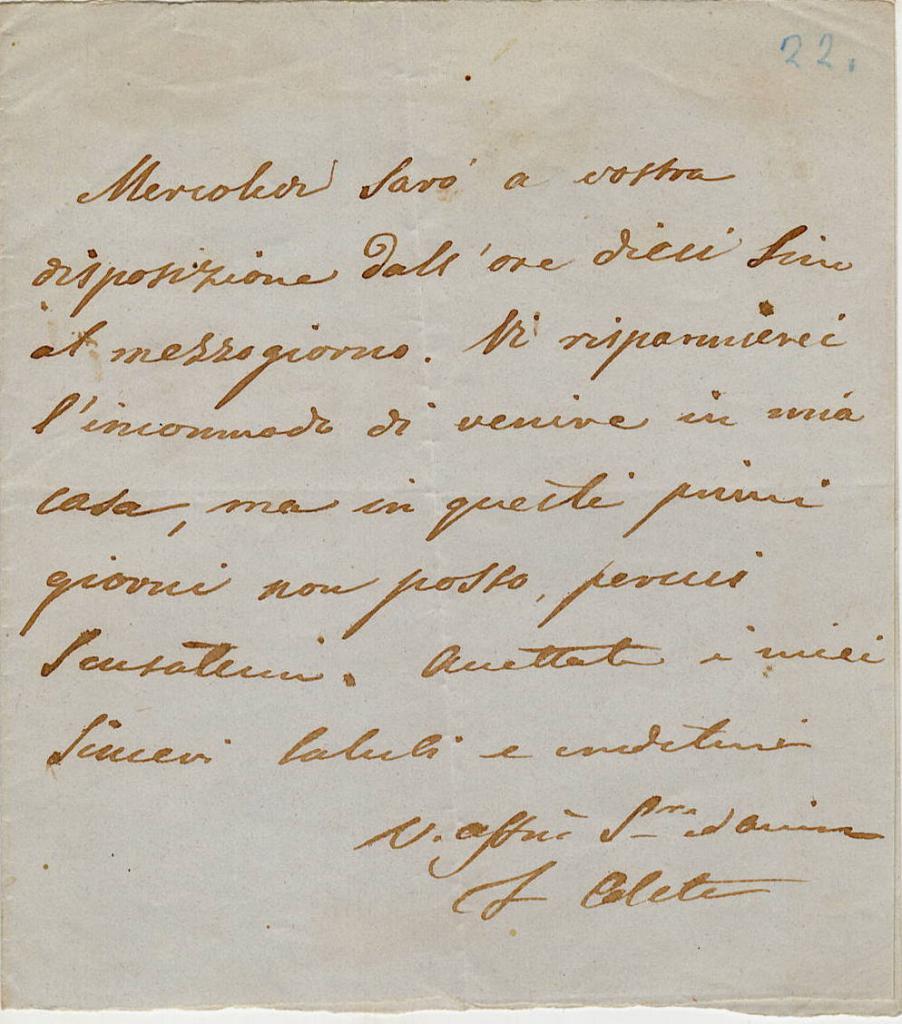 22.
Mercoledì Sarò a vostra
disposizione dall'ore dieci Sino
al mezzogiorno. Vi risparmierei
l'incommodo di venire in mia
casa, ma in questi primi
giorni non posso, perciò
Scusatemi. Accettate i miei
Sinceri Saluti e credetemi
V. affm̃a S.rva ed amica